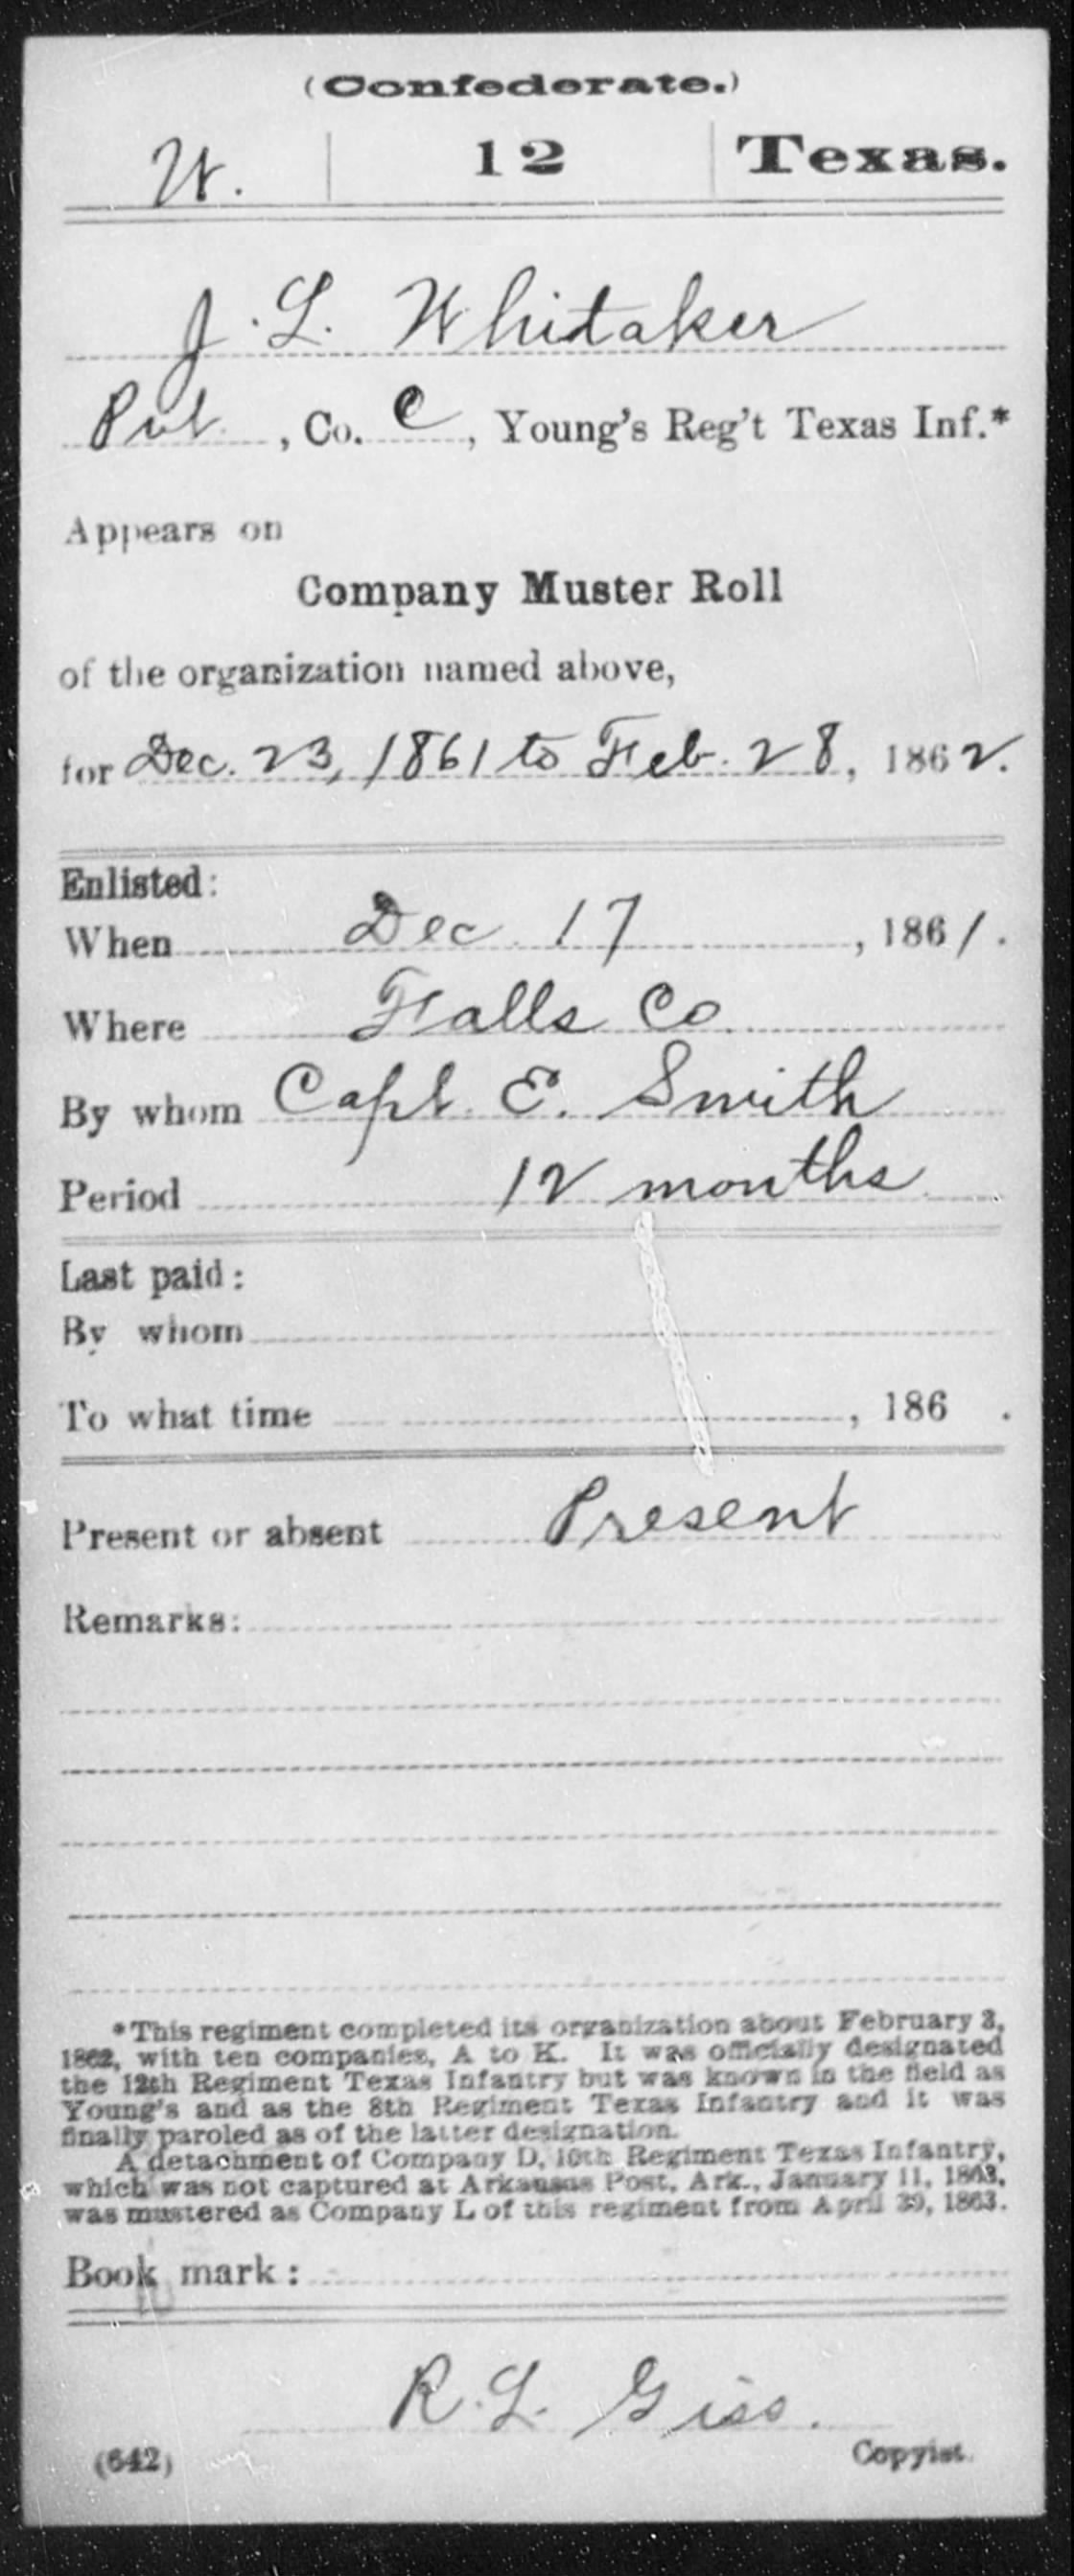 (Confederate.)
W. 12 Texas.
J. L. Whitaker
Pvt., Co. C, Young's Reg't Texas Inf.*
Appears on
Company Muster Roll
of the organization named above,
for Dec. 23, 1861 to Feb. 28, 1862.
Enlisted:
When Dec. 17, 1861.
Where Falls Co.
By whom Capt. E. Smith
Period 12 months
Last paid:
By whom
To what time , 186 .
Present or absent Present
Remarks:
*This regiment completed its organization about February 3,
1862, with ten companies, A to K. It was officially designated
the 12th Regiment Texas Infantry but was known in the field as
Young's and as the 8th Regiment Texas Infantry and it was
finally paroled as of the latter designation.
A detachment of Company D, 10th Regiment Texas Infantry,
which was not captured at Arkansas Post, Ark., January 11, 1863,
was mustered as Company L of this regiment from April 30, 1863.
Book mark:
R. L. Giss.
(642) Copyist.